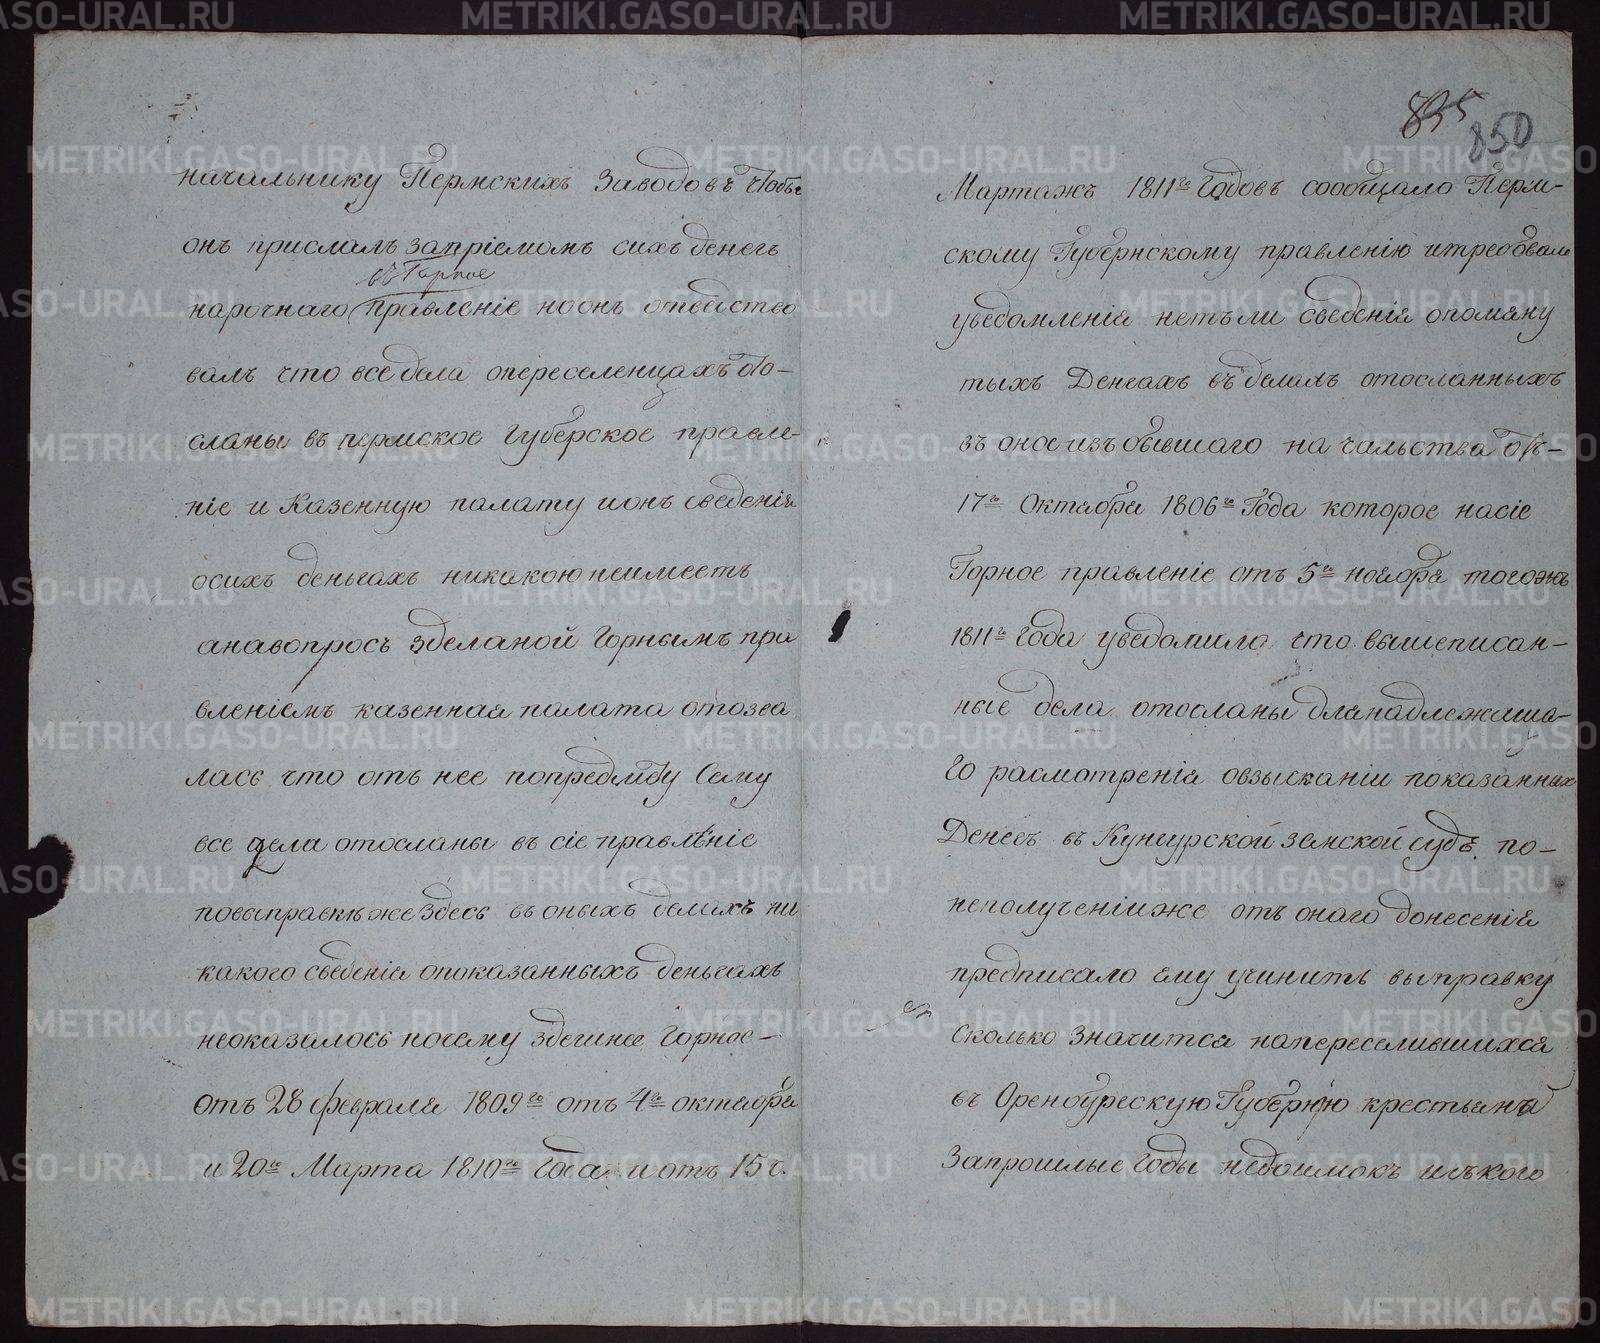 начальнику Пермскихъ Заводовъ чтобы
онъ прислалъ запріемомъ сихъ денегъ
въ Горное
нарочнаго правленіе но онъ ответство
валъ что все дела опереселенцахъ ото-
сланы въ пермское Губерское правле-
ніе и Казенную палату ионъ сведенія
осихъ деньгахъ никакою неимеетъ
анавопросъ зделаной Горнымъ пра
вленіемъ казенная палата отозва
лась что отъ нее попредмѣту Сему
все дела отосланы въ сіе правленіе
повыправкѣже здесь въ оныхъ делахъ ни
какого сведенія опоказанныхъ деньгахъ
неоказалось почему здешнее Горное-
отъ 28 февраля 1809го отъ 4го октября
и 20го Марта 1810го Года и отъ 15 г.
835
850
Мартажъ 1811го Годовъ сообщало Перм-
скому Губернскому правленію итребовало
уведомленія нетъли сведенія опомяну
тыхъ Денгахъ въ делалъ отосланныхъ
въ оное изъ бывшаго на чальства отъ-
17го Октября 1806го Года которое насіе
Горное правленіе отъ 5го ноября тогожъ
1811го Года уведомило что вышеписан-
ные дела отосланы для надлежаща-
Го расмотренія овзысканіи показанныхъ
Денегъ въ Кунгурской земской судъ, по-
неполученіиже отъ онаго донесенія
предписало ему учинить выправку
сколько значится напереселившихся
въ Оренбурескую Губернію крестьянъ
Запрошлые Годы недоимокъ ислького
METRIKI.GASO-URAL.RU